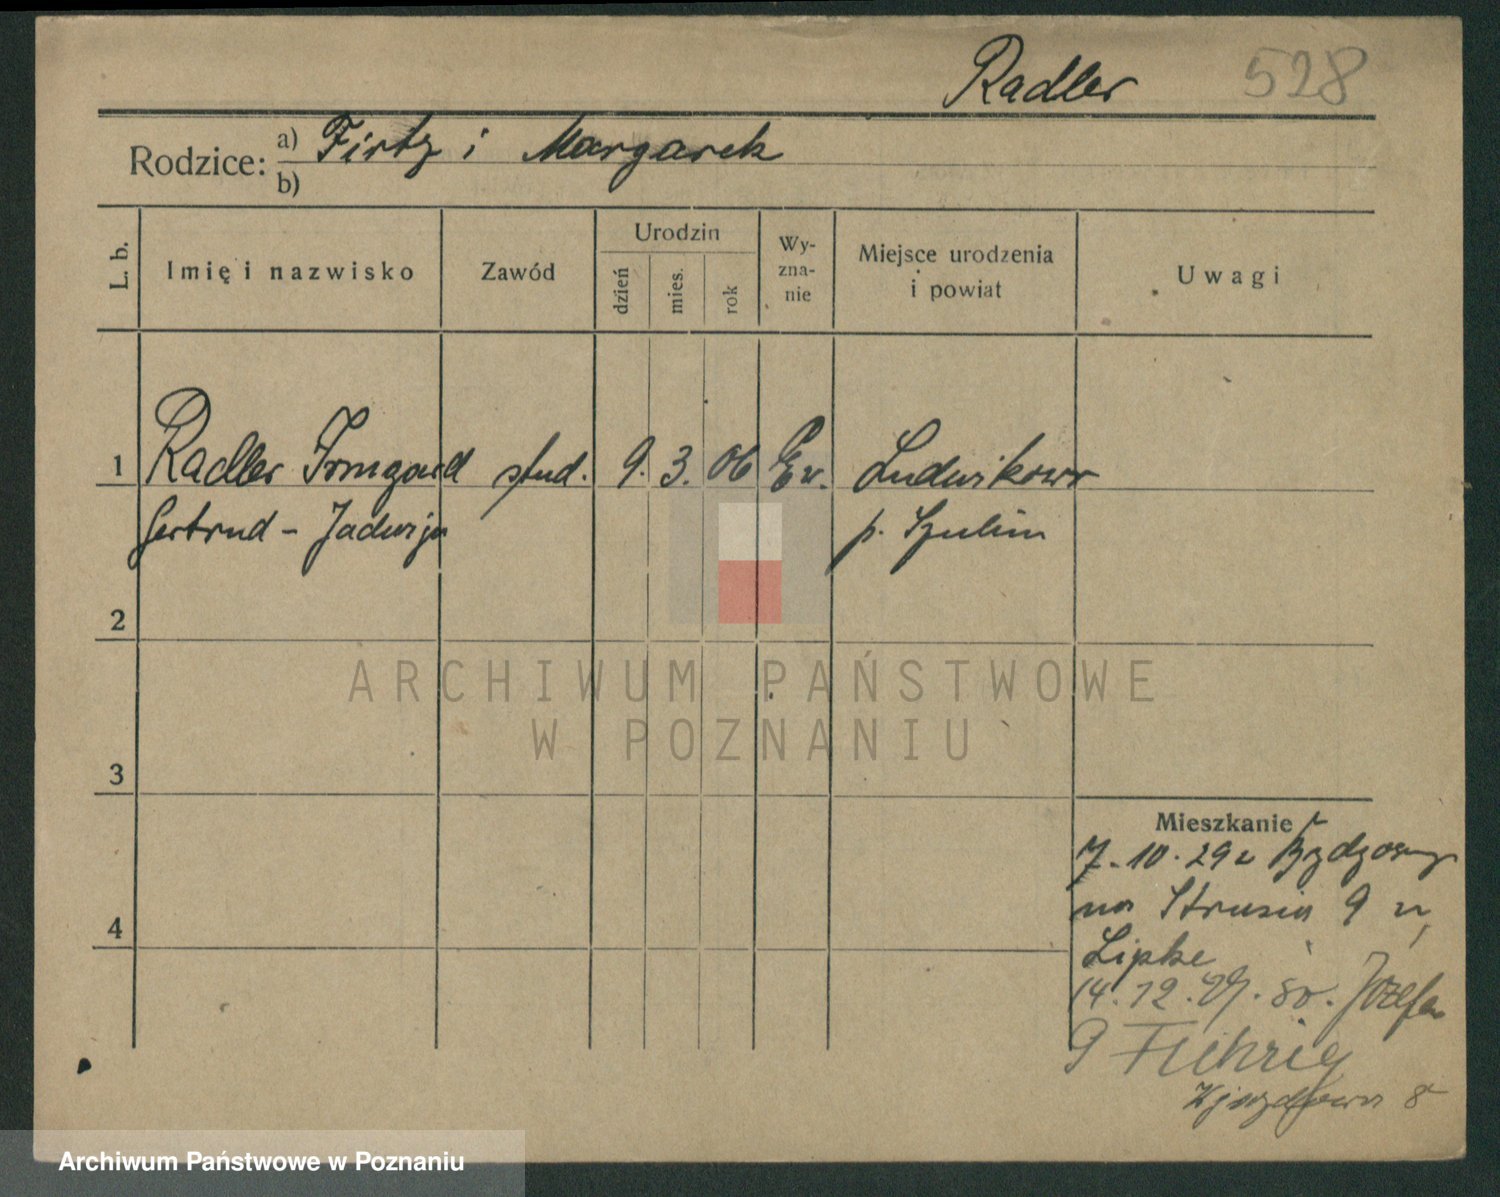 Radler 528
Rodzice: a) Firtz i Margarek
b)
L. b. Imię i nazwisko Zawód Urodzin dzień mies. rok Wy-zna-nie Miejsce urodzenia i powiat Uwagi
1 Radler Irmgard stud. 9. 3. 06 Ew. Ludwikowo
Gertrud - Jadwiga p. Szubin
2
ARCHIWUM PAŃSTWOWE
W POZNANIU
3
Mieszkanie
7.10.29 z Bydgoszczy
na Strusia 9 u
4
Lipke
14.12.29. Józefa
9 Fiehrig
Wjazdowa 8
Archiwum Państwowe w Poznaniu